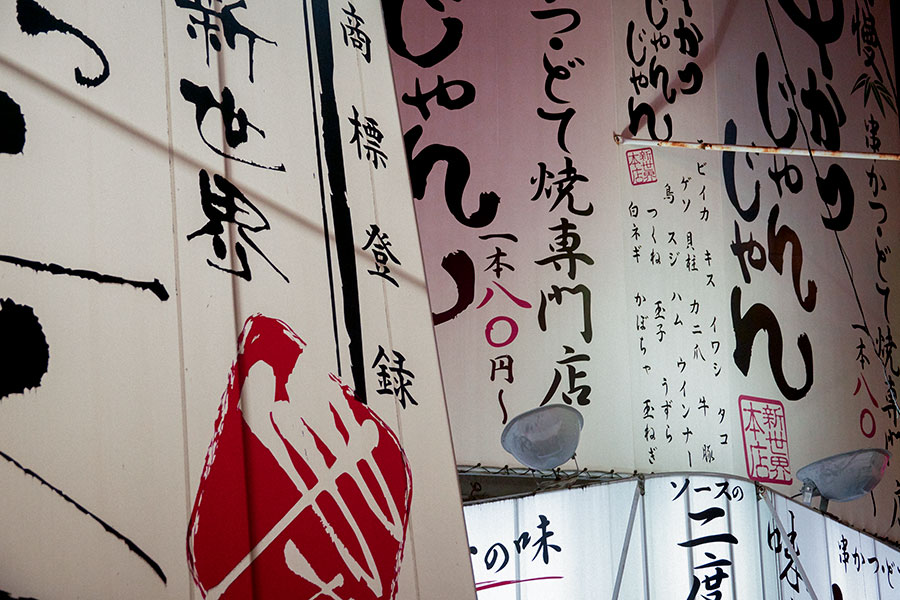 新世界
商標登録
じゃん
つ・どて焼専門店
一本八〇円〜
かつり
じゃん
じゃん
新世界
本店
ビイカ キス イワシ タコ
ゲソ 貝柱 カニ爪 牛 豚
鳥 スジ ハム ウインナー
つくね 玉子 うずら
白ネギ かぼちゃ 玉ねぎ
じゃん
じゃん
新世界
本店
串かつ・どて焼専門店
一本八〇
の味
ソースの
二度
味
串かつ・ど